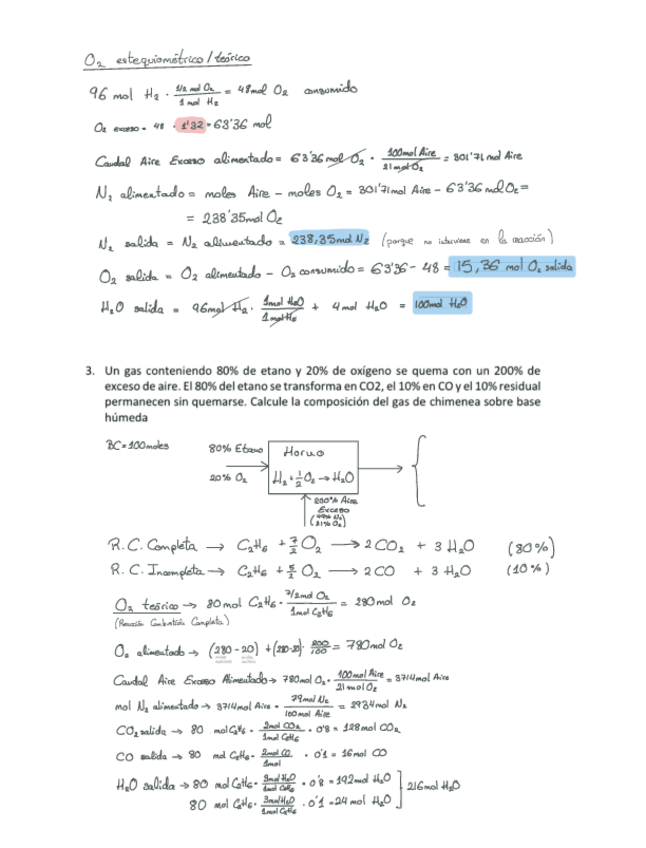 O₂ estequiométrico / teórico
96 mol H₂ · 1/2 mol O₂ / 1 mol H₂ = 48 mol O₂ consumido
O₂ exceso = 48 · 1'32 = 63'36 mol
Caudal Aire Exceso alimentado = 63'36 mol O₂ · 100 mol Aire / 21 mol O₂ = 301'71 mol Aire
N₂ alimentado = moles Aire - moles O₂ = 301'71 mol Aire - 63'36 mol O₂ =
= 238'35 mol O₂
N₂ salida = N₂ alimentado = 238,35 mol N₂ (porque no interviene en la reacción)
O₂ salida = O₂ alimentado - O₂ consumido = 63'36 - 48 = 15,36 mol O₂ salida
H₂O salida = 96 mol H₂ · 1 mol H₂O / 1 mol H₂ + 4 mol H₂O = 100 mol H₂O
3. Un gas conteniendo 80% de etano y 20% de oxígeno se quema con un 200% de
exceso de aire. El 80% del etano se transforma en CO2, el 10% en CO y el 10% residual
permanecen sin quemarse. Calcule la composición del gas de chimenea sobre base
húmeda
BC = 100 moles
80% Etano
20% O₂
Horno
H₂ + 1/2 O₂ → H₂O
200% Aire
Exceso
(79% N₂
21% O₂)
R.C. Completa → C₂H₆ + 7/2 O₂ → 2 CO₂ + 3 H₂O (80%)
R.C. Incompleta → C₂H₆ + 5/2 O₂ → 2 CO + 3 H₂O (10%)
O₂ teórico → 80 mol C₂H₆ · 7/2 mol O₂ / 1 mol C₂H₆ = 280 mol O₂
(Reacción Combustión Completa)
O₂ alimentado → (280 - 20) + (280-20) · 200/100 = 780 mol O₂
Caudal Aire Exceso Alimentado → 780 mol O₂ · 100 mol Aire / 21 mol O₂ = 3714 mol Aire
mol N₂ alimentado → 3714 mol Aire · 79 mol N₂ / 100 mol Aire = 2934 mol N₂
CO₂ salida → 80 mol C₂H₆ · 2 mol CO₂ / 1 mol C₂H₆ · 0'8 = 128 mol CO₂
CO salida → 80 mol C₂H₆ · 2 mol CO / 1 mol · 0'1 = 16 mol CO
H₂O salida → 80 mol C₂H₆ · 3 mol H₂O / 1 mol C₂H₆ · 0'8 = 192 mol H₂O
80 mol C₂H₆ · 3 mol H₂O / 1 mol C₂H₆ · 0'1 = 24 mol H₂O
216 mol H₂O